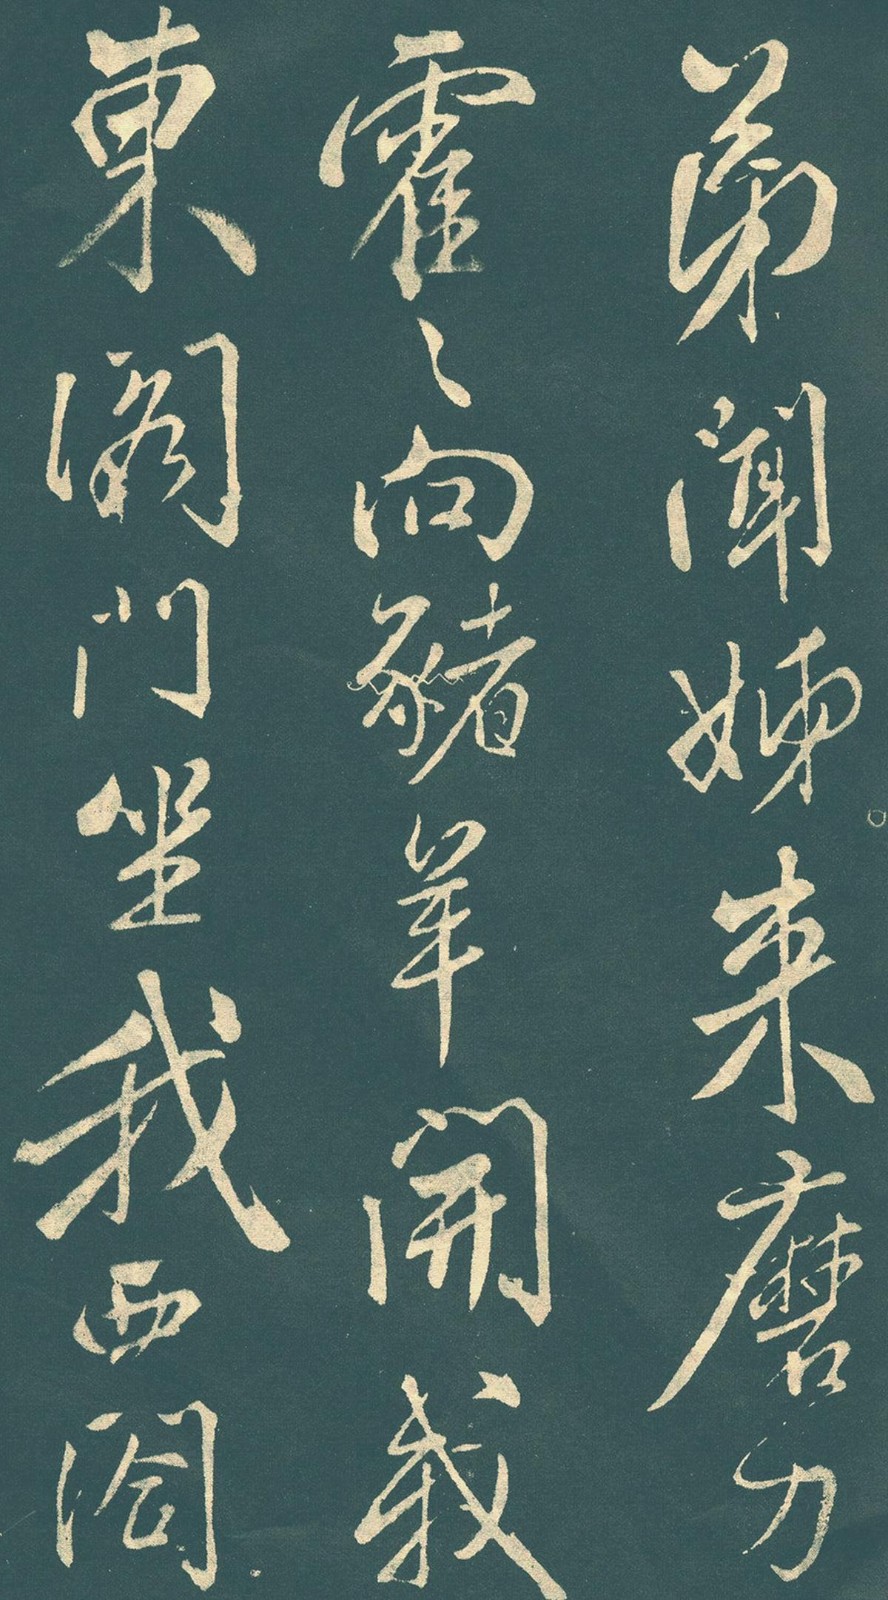 弟聞姊来磨刀
霍〻向豬羊開我
東閣門坐我西閤